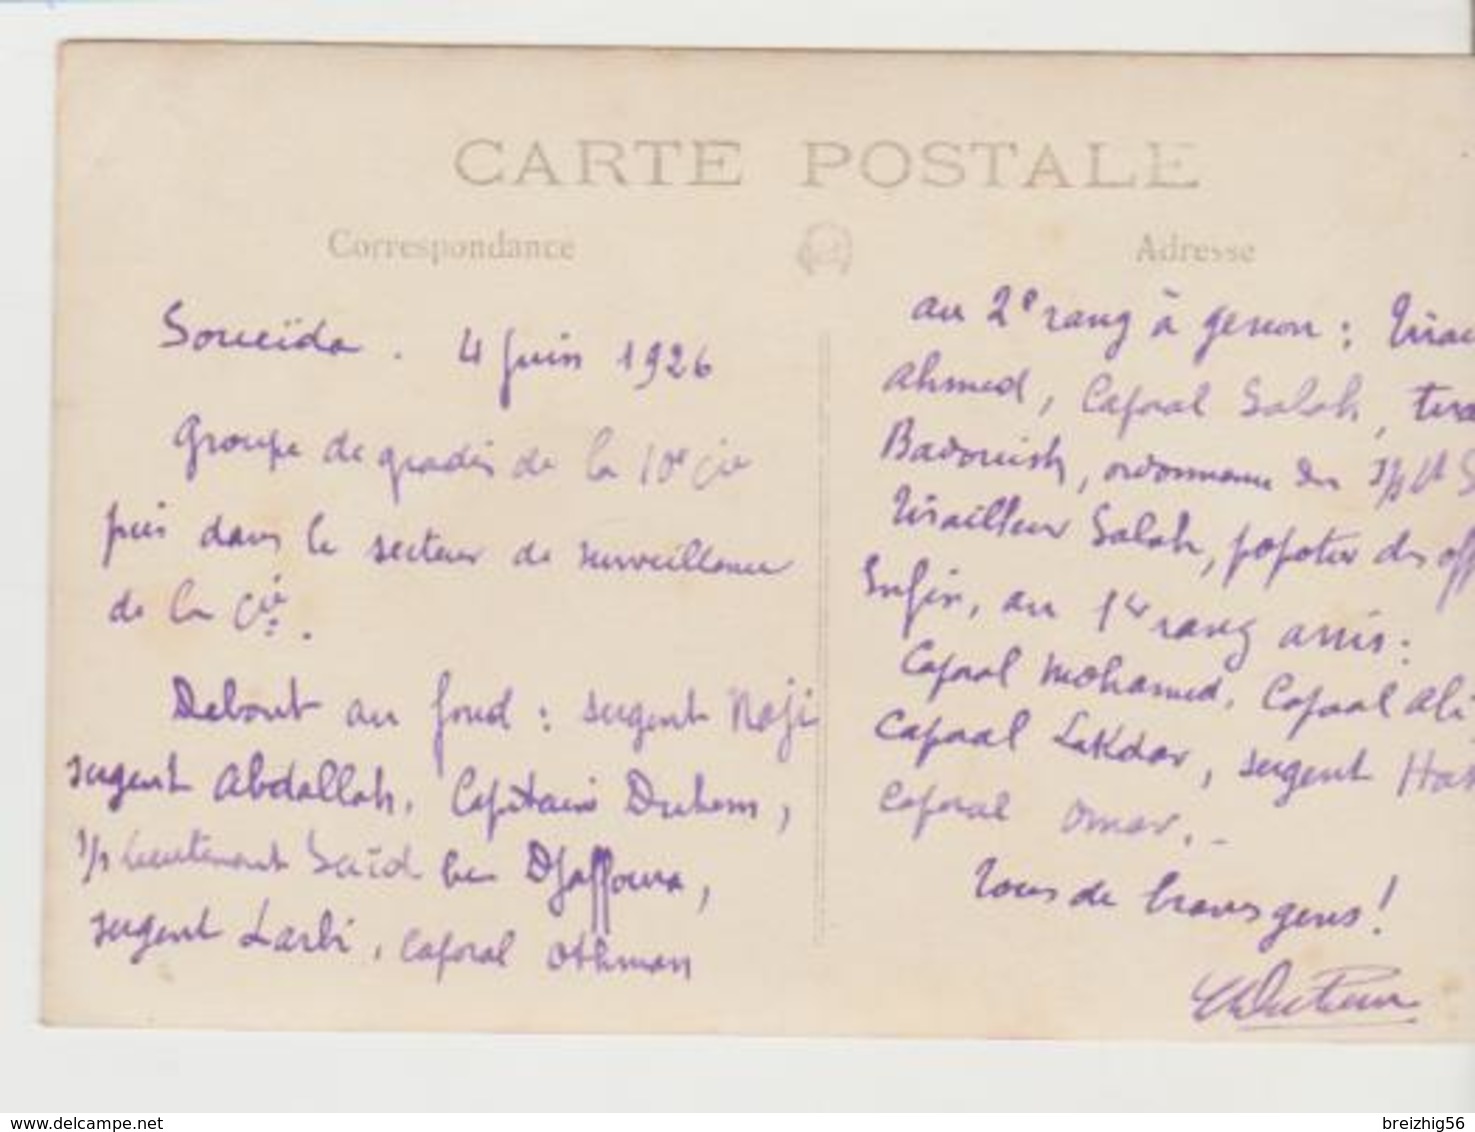 CARTE POSTALE
Correspondance
Adresse
Soueïda. 4 Juin 1926
Groupe de gradés de la 10e Cie
pris dans le secteur de surveillance
de la Cie.
Debout au fond : sergent Naji
sergent Abdallah, Capitaine Duhem,
s/lieutenant Saïd ben Djaffoura,
sergent Larbi, caporal Othman
au 2e rang à genou : Tirai
Ahmed, Caporal Salah, tira
Badouish, ordonnance du s/Lt S
Tirailleur Salah, popotier des off
Enfin, au 1er rang assis :
Caporal Mohamed, Caporal Ali,
Caporal Lakdar, sergent Hat
Caporal Omar.
Tous de braves gens !
www.delcampe.net
breizhig56